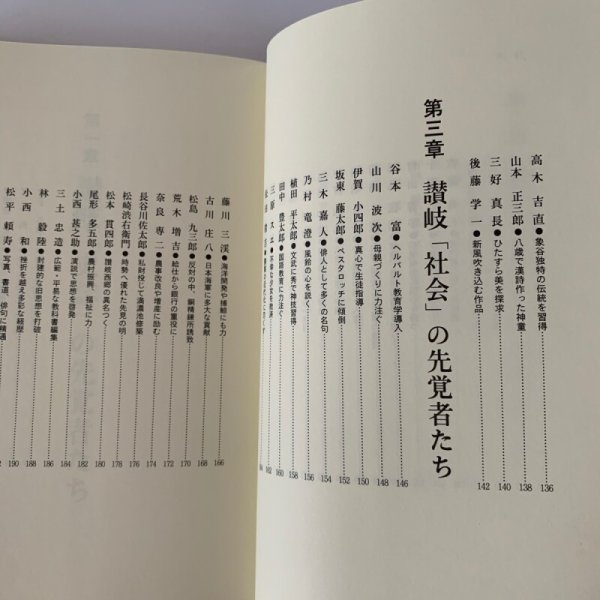 高木 吉直●象谷独特の伝統を習得 136
山本 正三郎●八歳で漢詩作った神童 138
三好 真長●ひたすら美を探求 140
後藤 学一●新風吹き込む作品 142
第三章 讃岐「社会」の先覚者たち
谷本 富●ヘルバルト教育学導入 146
山川 波次●母親づくりに力注ぐ 148
伊賀 小四郎●真心で生徒指導 150
坂東 藤太郎●ペスタロッチに傾倒 152
三木 嘉人●俳人として多くの名句 154
乃村 竜澄●風紛の心を説く 156
植田 平太郎●文武に秀で神技習得 158
田中 豊太郎●国語教育に力注ぐ 160
三原 スエ●不幸な少女を救済 162
藤川 三渓●海洋開発や捕鯨にも力 166
古川 庄八●日本海軍に多大な貢献 168
松島 九三郎●反対の中、銅精錬所誘致 170
荒木 増吉●給仕から銀行の重役に 172
奈良 専二●農事改良や増産に励む 174
長谷川佐太郎●私財投じて満濃池修築 176
松崎渋右衛門●時勢へ優れた先見の明 178
松本 貫四郎●讃岐西郷の異名つく 180
尾形 多五郎●農村振興、福祉に力 182
小西 甚之助●演説で思想を啓発 184
三土 忠造●広範・平易な教科書編集 186
林 毅陸●封建的な旧思想を打破 188
小西 和●挫折を越え多彩な経歴 190
松平 頼寿●写真、書道、俳句に精通